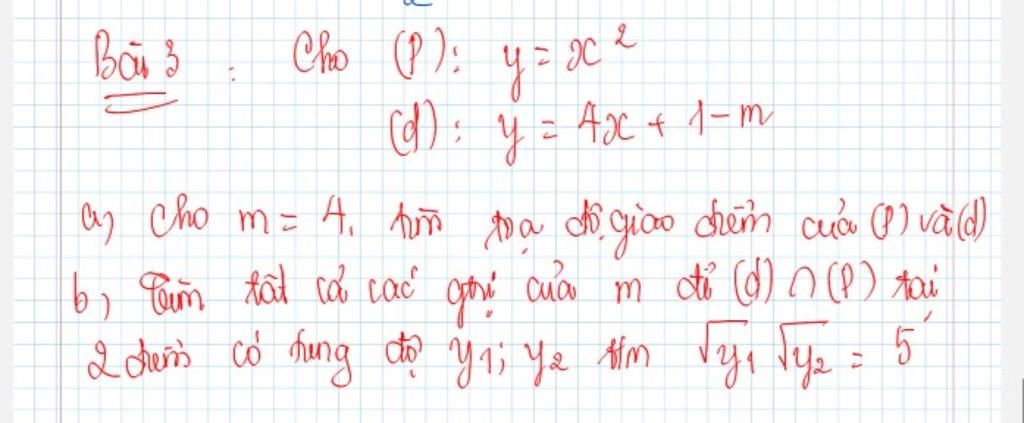 Bài 3 : Cho (P): y = x²
(d): y = 4x + 1 - m
a) Cho m = 4. tìm tọa độ giao điểm của (P) và (d)
b) Tìm tất cả các gtrị của m để (d) ∩ (P) tại
2 điểm có tung độ y₁; y₂ t/m √y₁ √y₂ = 5